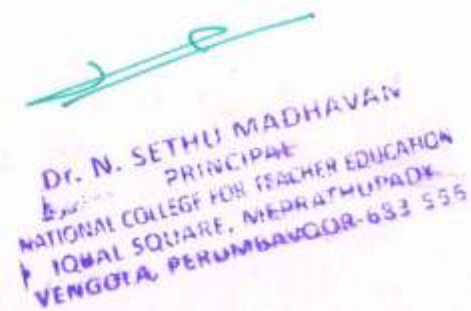 Dr. N. SETHU MADHAVAN
PRINCIPAL
NATIONAL COLLEGE FOR TEACHER EDUCATION
IQBAL SQUARE,
VENGOLA, PERUMBAVOOR-683 556